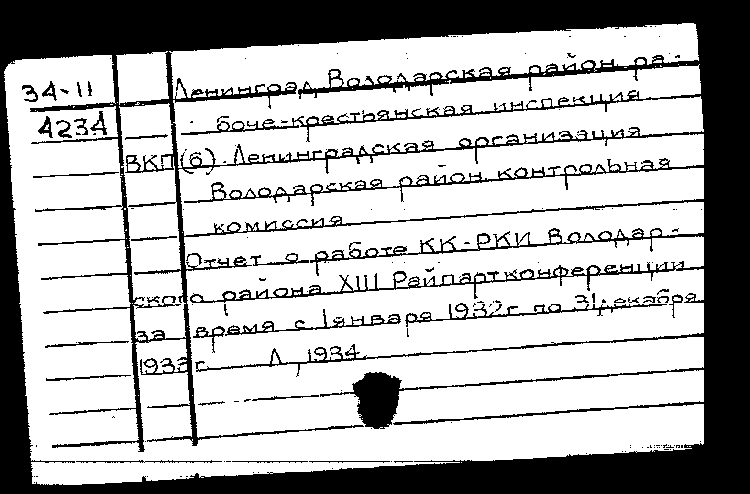 34-11 Ленинград, Володарская район ра-
4234 боче-крестьянская инспекция
ВКП(б). Ленинградская организация
Володарская район контрольная
комиссия
Отчет о работе КК-РКИ Володар-
ского района XIII Райпартконференции
за время с 1 января 1932г по 31 декабря
1933г. Л, 1934.